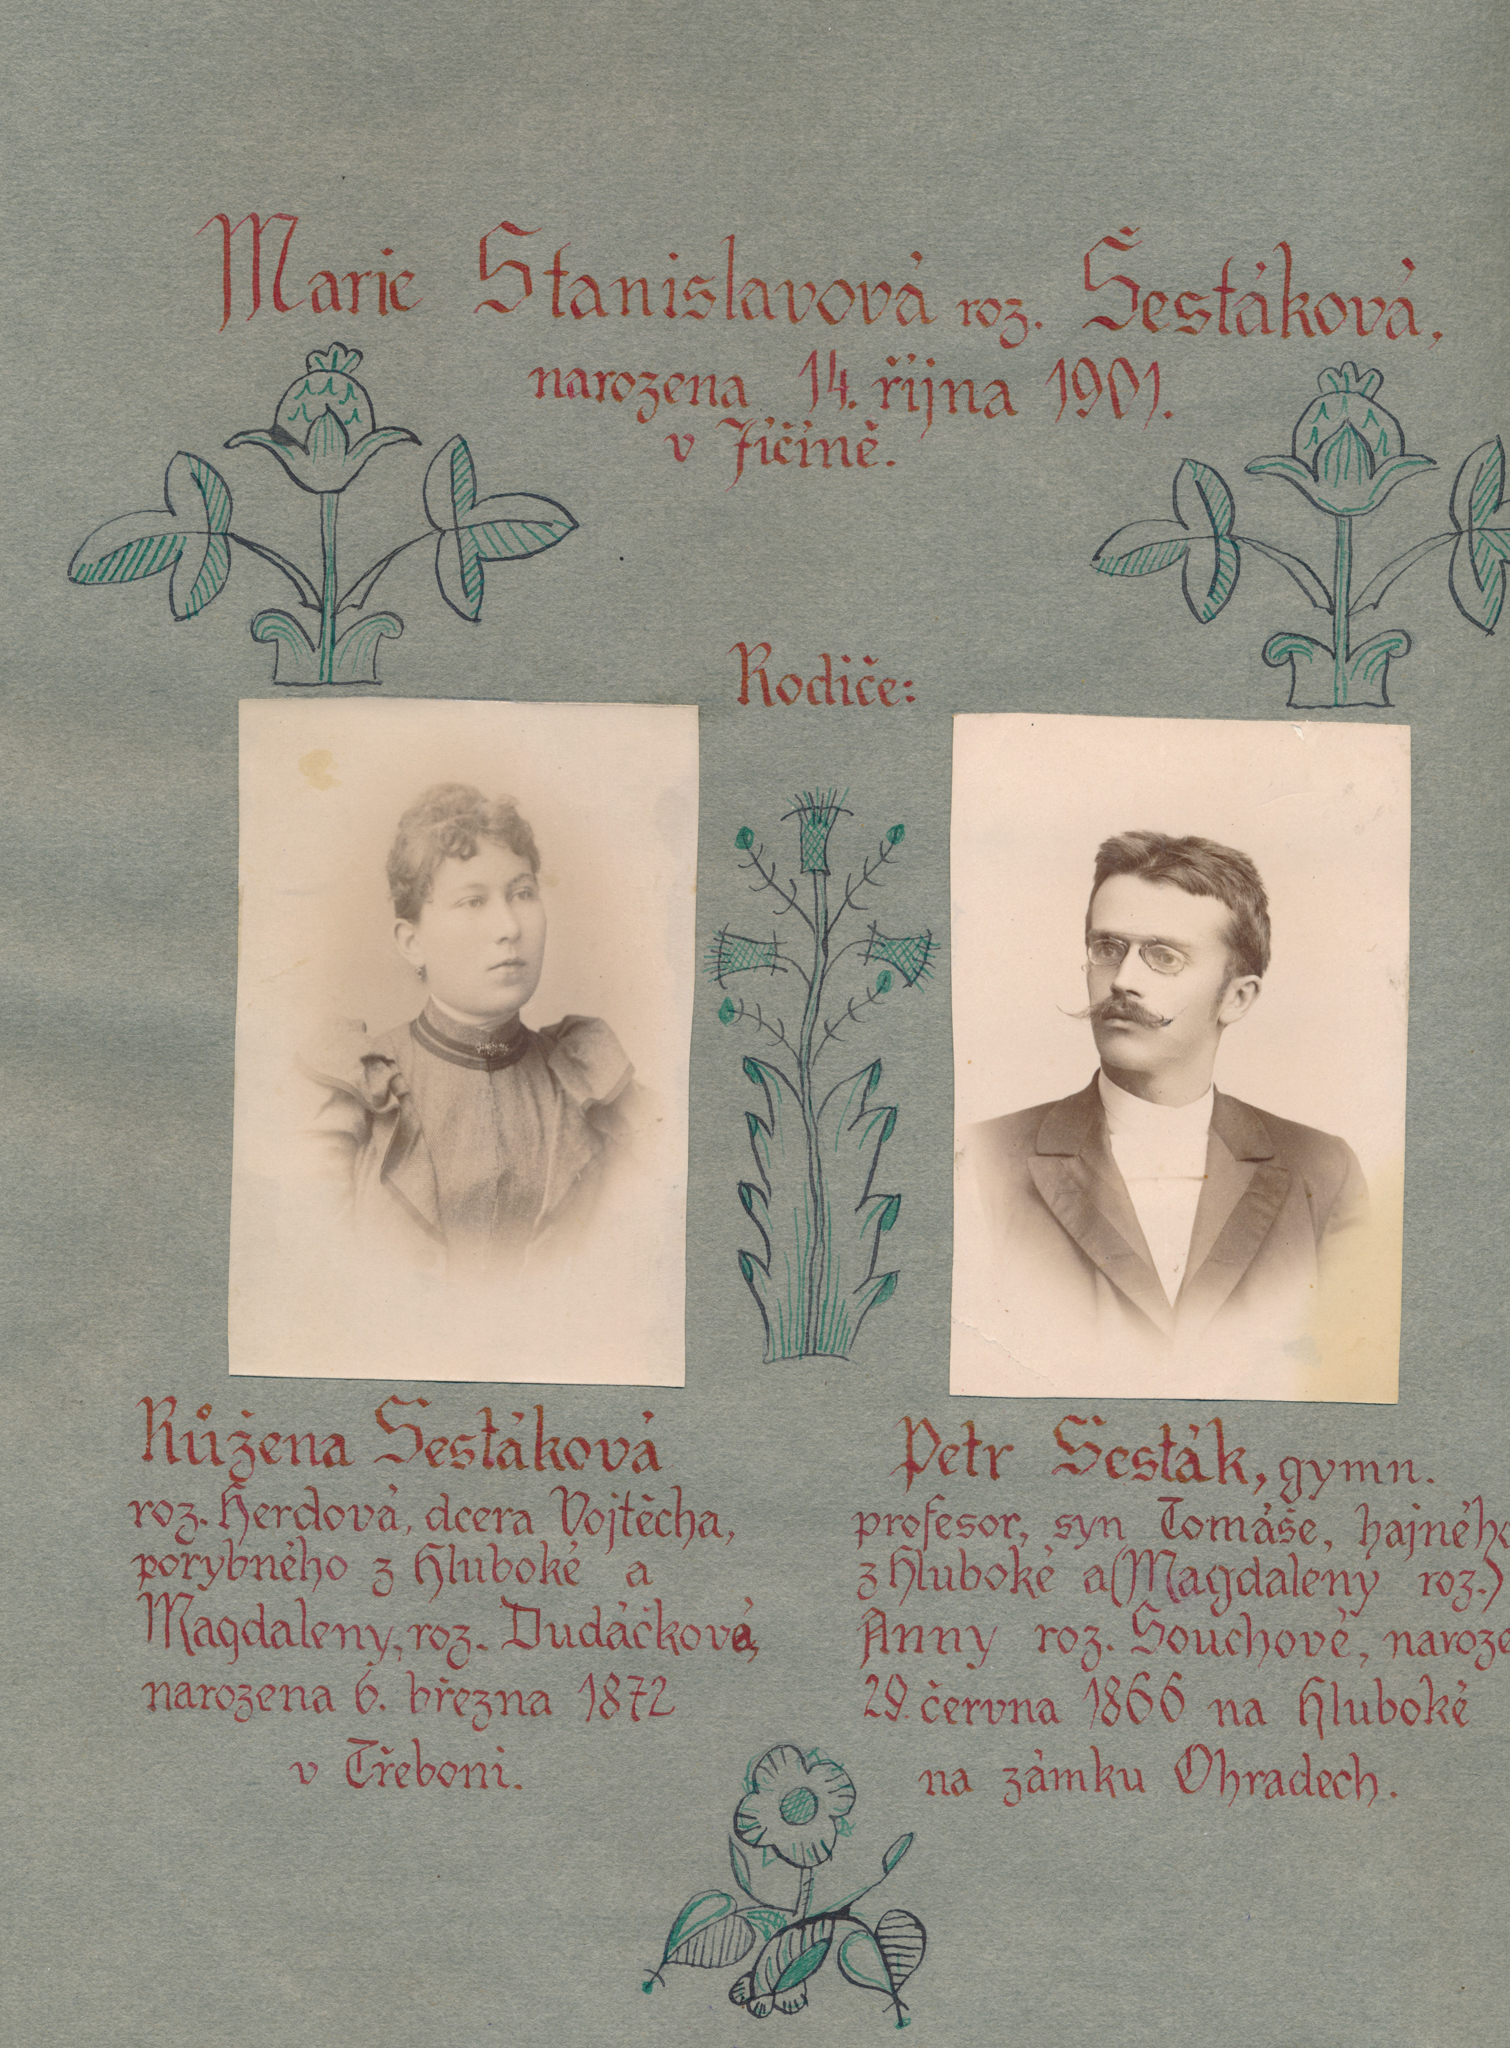 Marie Stanislavová roz. Šestáková,
narozena 14. října 1901.
v Jičíně.
Rodiče:
Růžena Šestáková
roz. Herdová, dcera Vojtěcha,
porybného z Hluboké a
Magdaleny, roz. Dudáčkové,
narozena 6. března 1872
v Třeboni.
Petr Šesták, gymn.
profesor, syn Tomáše, hajného
z Hluboké a (Magdaleny roz.)
Anny roz. Souchové, naroze
29. června 1866 na Hluboké
na zámku Ohradech.